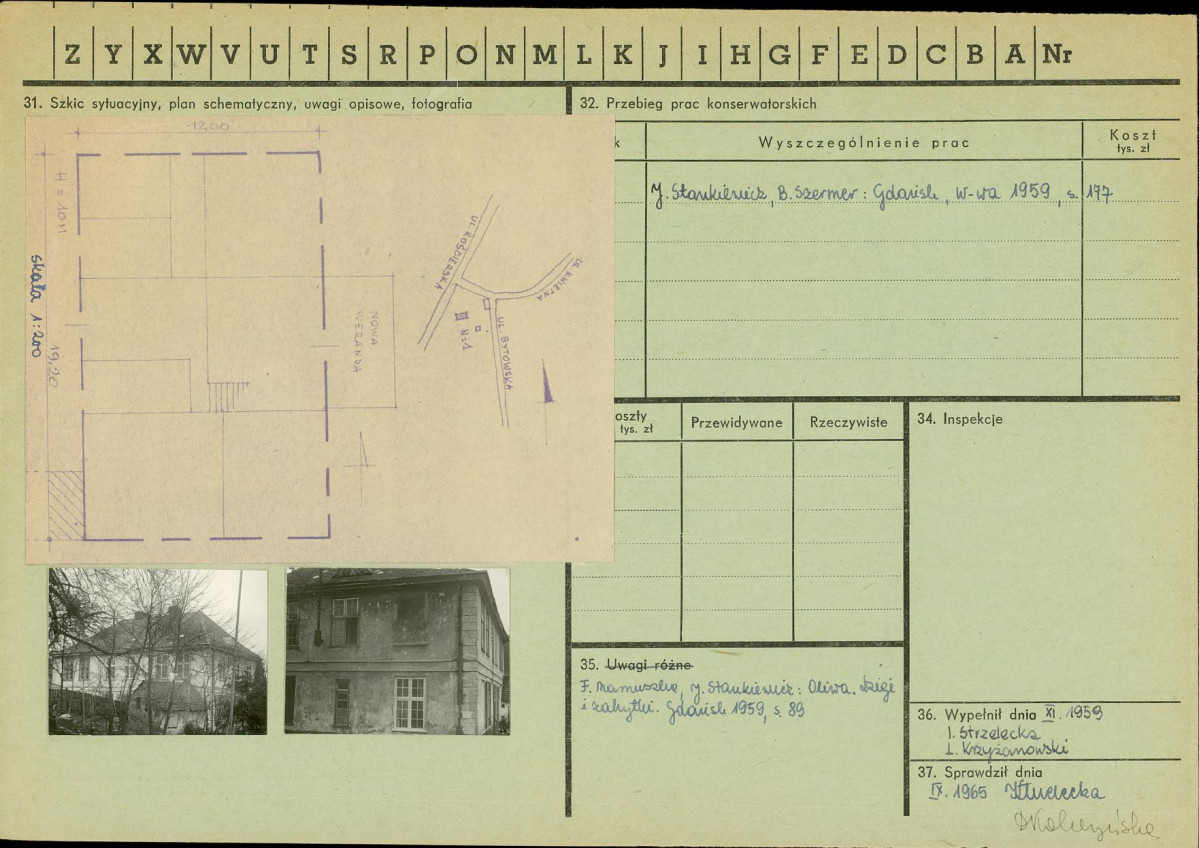 Z Y X W V U T S R P O N M L K J I H G F E D C B A Nr
31. Szkic sytuacyjny, plan schematyczny, uwagi opisowe, fotografia
12,00
H = 10 M
skala 1:200
19,20
NOWA
WERANDA
UL. KOŚCIERSKA
UL. KWIETNA
UL. BYTOWSKA
N=1
32. Przebieg prac konserwatorskich
k
Wyszczególnienie prac
Koszt
tys. zł
J. Stankiewicz, B. Szermer: Gdańsk, W-wa 1959, s. 177
oszty
tys. zł
Przewidywane
Rzeczywiste
34. Inspekcje
35. Uwagi różne
F. Mamuszka, J. Stankiewicz: Oliwa, dzieje
i zabytki. Gdańsk 1959, s. 89
36. Wypełnił dnia XI. 1959
I. Strzelecka
L. Krzyżanowski
37. Sprawdził dnia
IX. 1965